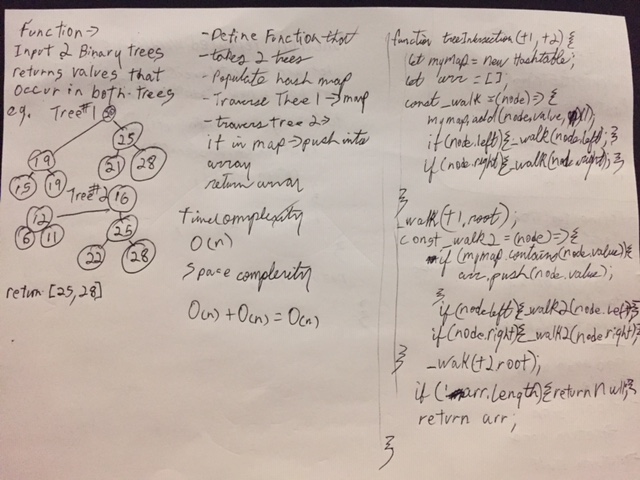 Function →
Input 2 Binary trees
returns values that
occur in both trees
eg. Tree#1
20
19
15
19
25
21
28
Tree#2
16
12
6
11
25
22
28
return [25,28]
- Define Function that
- takes 2 trees
- Populate hash map
- Traverse Tree 1 → map
- traverse tree 2 →
if in map → push into
array
return array
Time complexity
O(n)
Space complexity
O(n) + O(n) = O(n)
function treeIntersection (t1, t2) {
let mymap = new Hashtable;
let arr = [];
const _walk = (node) => {
m.map.add(node.value,
if(node.left) {_walk(node.left); }
if(node.right) {_walk(node.right); }
}
_walk(t1.root);
const _walk2 = (node) => {
if (m.map.contains(node.value) {
arr.push(node.value);
}
if(node.left) {_walk2(node.left)}
if(node.right) {_walk2(node.right)}
}
_walk(t2.root);
if (!arr.length) { return null }
return arr;
}